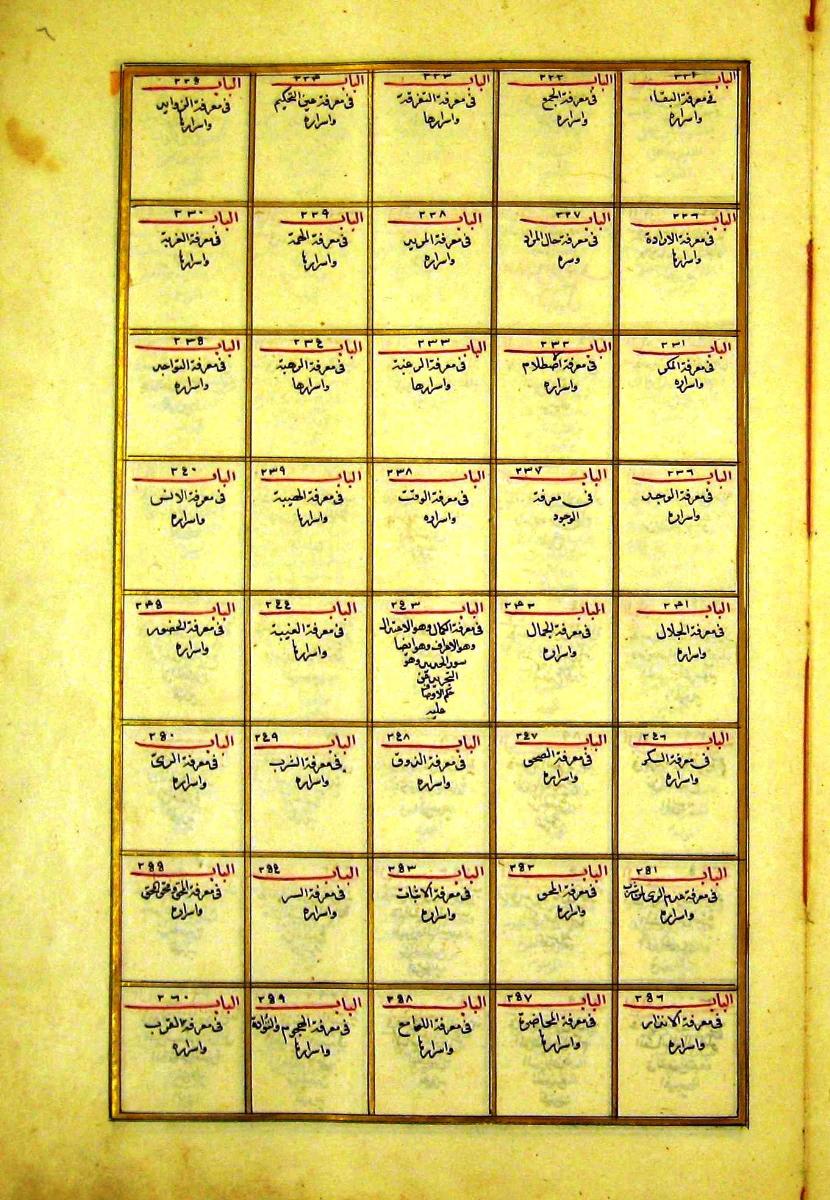 ٦
الباب ٢٢١
في معرفة البقاء
واسراره
الباب ٢٢٢
في معرفة الجمع
واسراره
الباب ٢٢٣
في معرفة التفرقة
واسرارها
الباب ٢٢٤
في معرفة عين التحكيم
واسراره
الباب ٢٢٥
في معرفة الزوايد
واسرارها
الباب ٢٢٦
في معرفة الارادة
واسرارها
الباب ٢٢٧
في معرفة حال المراد
وسره
الباب ٢٢٨
في معرفة المريد
واسراره
الباب ٢٢٩
في معرفة الهمة
واسرارها
الباب ٢٣٠
في معرفة الغربة
واسرارها
الباب ٢٣١
في معرفة المكر
واسراره
الباب ٢٣٢
في معرفة اصطلام
واسراره
الباب ٢٣٣
في معرفة الرغبة
واسرارها
الباب ٢٣٤
في معرفة الرهبة
واسرارها
الباب ٢٣٥
في معرفة التواجد
واسراره
الباب ٢٣٦
في معرفة الوجد
واسراره
الباب ٢٣٧
في معرفة
الوجود
الباب ٢٣٨
في معرفة الوقت
واسراره
الباب ٢٣٩
في معرفة الهيبة
واسرارها
الباب ٢٤٠
في معرفة الانس
واسراره
الباب ٢٤١
في معرفة الجلال
واسراره
الباب
في معرفة الجمال
واسراره
الباب ٢٤٣
في معرفة الكمال وهو الاعتدال
وهو الاعراف وهو ايضا
سور الحديد وهو
التجريد عن
حكم الاوصاف
عليه
الباب ٢٤٤
في معرفة الغيبة
واسرارها
الباب ٢٤٥
في معرفة الحضور
واسراره
الباب ٢٤٦
في معرفة السكر
واسراره
الباب ٢٤٧
في معرفة الصحى
واسراره
الباب ٢٤٨
في معرفة الذوق
واسراره
الباب ٢٤٩
في معرفة الشرب
واسراره
الباب ٢٥٠
في معرفة الرى
واسراره
الباب ٢٥١
في معرفة عدم الرى لمن شرب
واسراره
الباب ٢٥٢
في معرفة المحى
واسراره
الباب ٢٥٣
في معرفة الاثبات
واسراره
الباب ٢٥٤
في معرفة الستر
واسراره
الباب ٢٥٥
في معرفة المحق ومحق المحق
واسراره
الباب ٢٥٦
في معرفة الابدار
واسراره
الباب ٢٥٧
في معرفة المحاضرة
واسرارها
الباب ٢٥٨
في معرفة اللوامع
واسرارها
الباب ٢٥٩
في معرفة الهجوم والبواده
واسرارها
الباب ٢٦٠
في معرفة القرب
واسراره